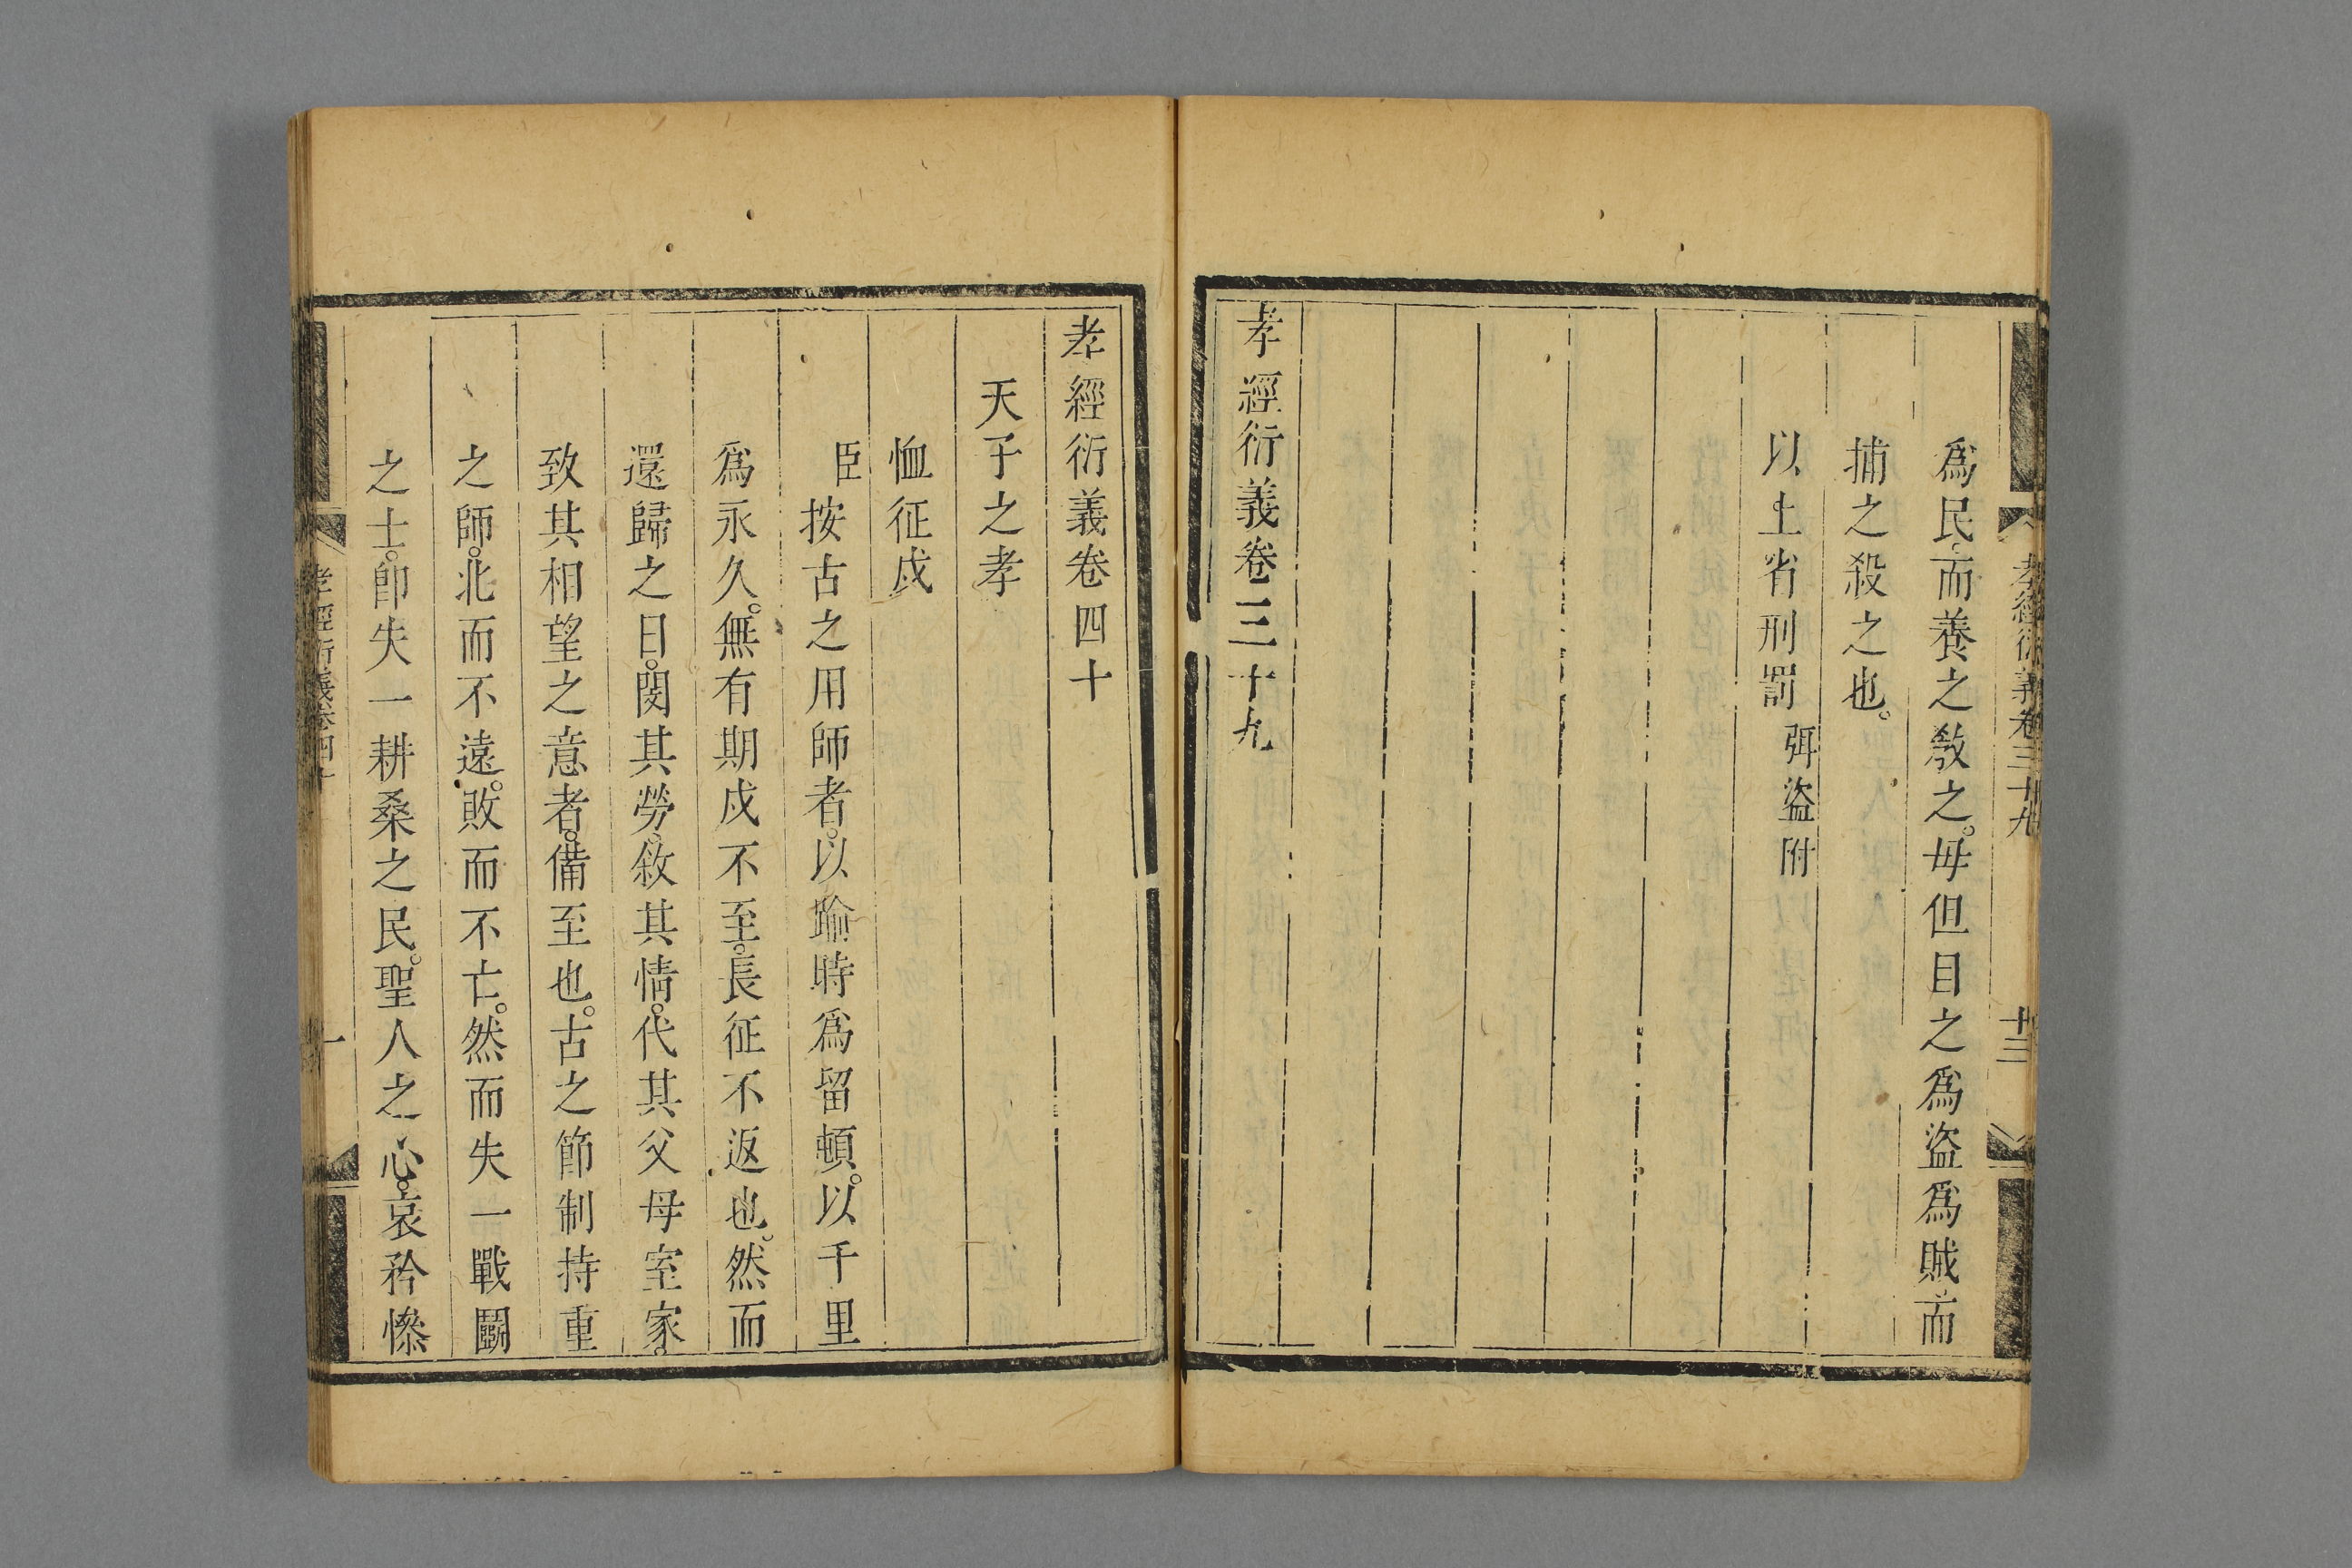 孝經衍義卷三十九
十三
爲民而養之敎之。毋但目之爲盜爲賊而
捕之殺之也。
以上省刑罰 弭盜附
孝經衍義卷三十九
孝經衍義卷四十
天子之孝
恤征戍
臣按古之用師者。以踰時爲留頓。以千里
爲永久。無有期戍不至。長征不返也。然而
還歸之日。閔其勞。敘其情。代其父母室家。
致其相望之意者。備至也。古之節制持重
之師。北而不遠。敗而不亡。然而失一戰鬭
之士。卽失一耕桑之民。聖人之心。哀矜慘
孝經衍義卷四十
一